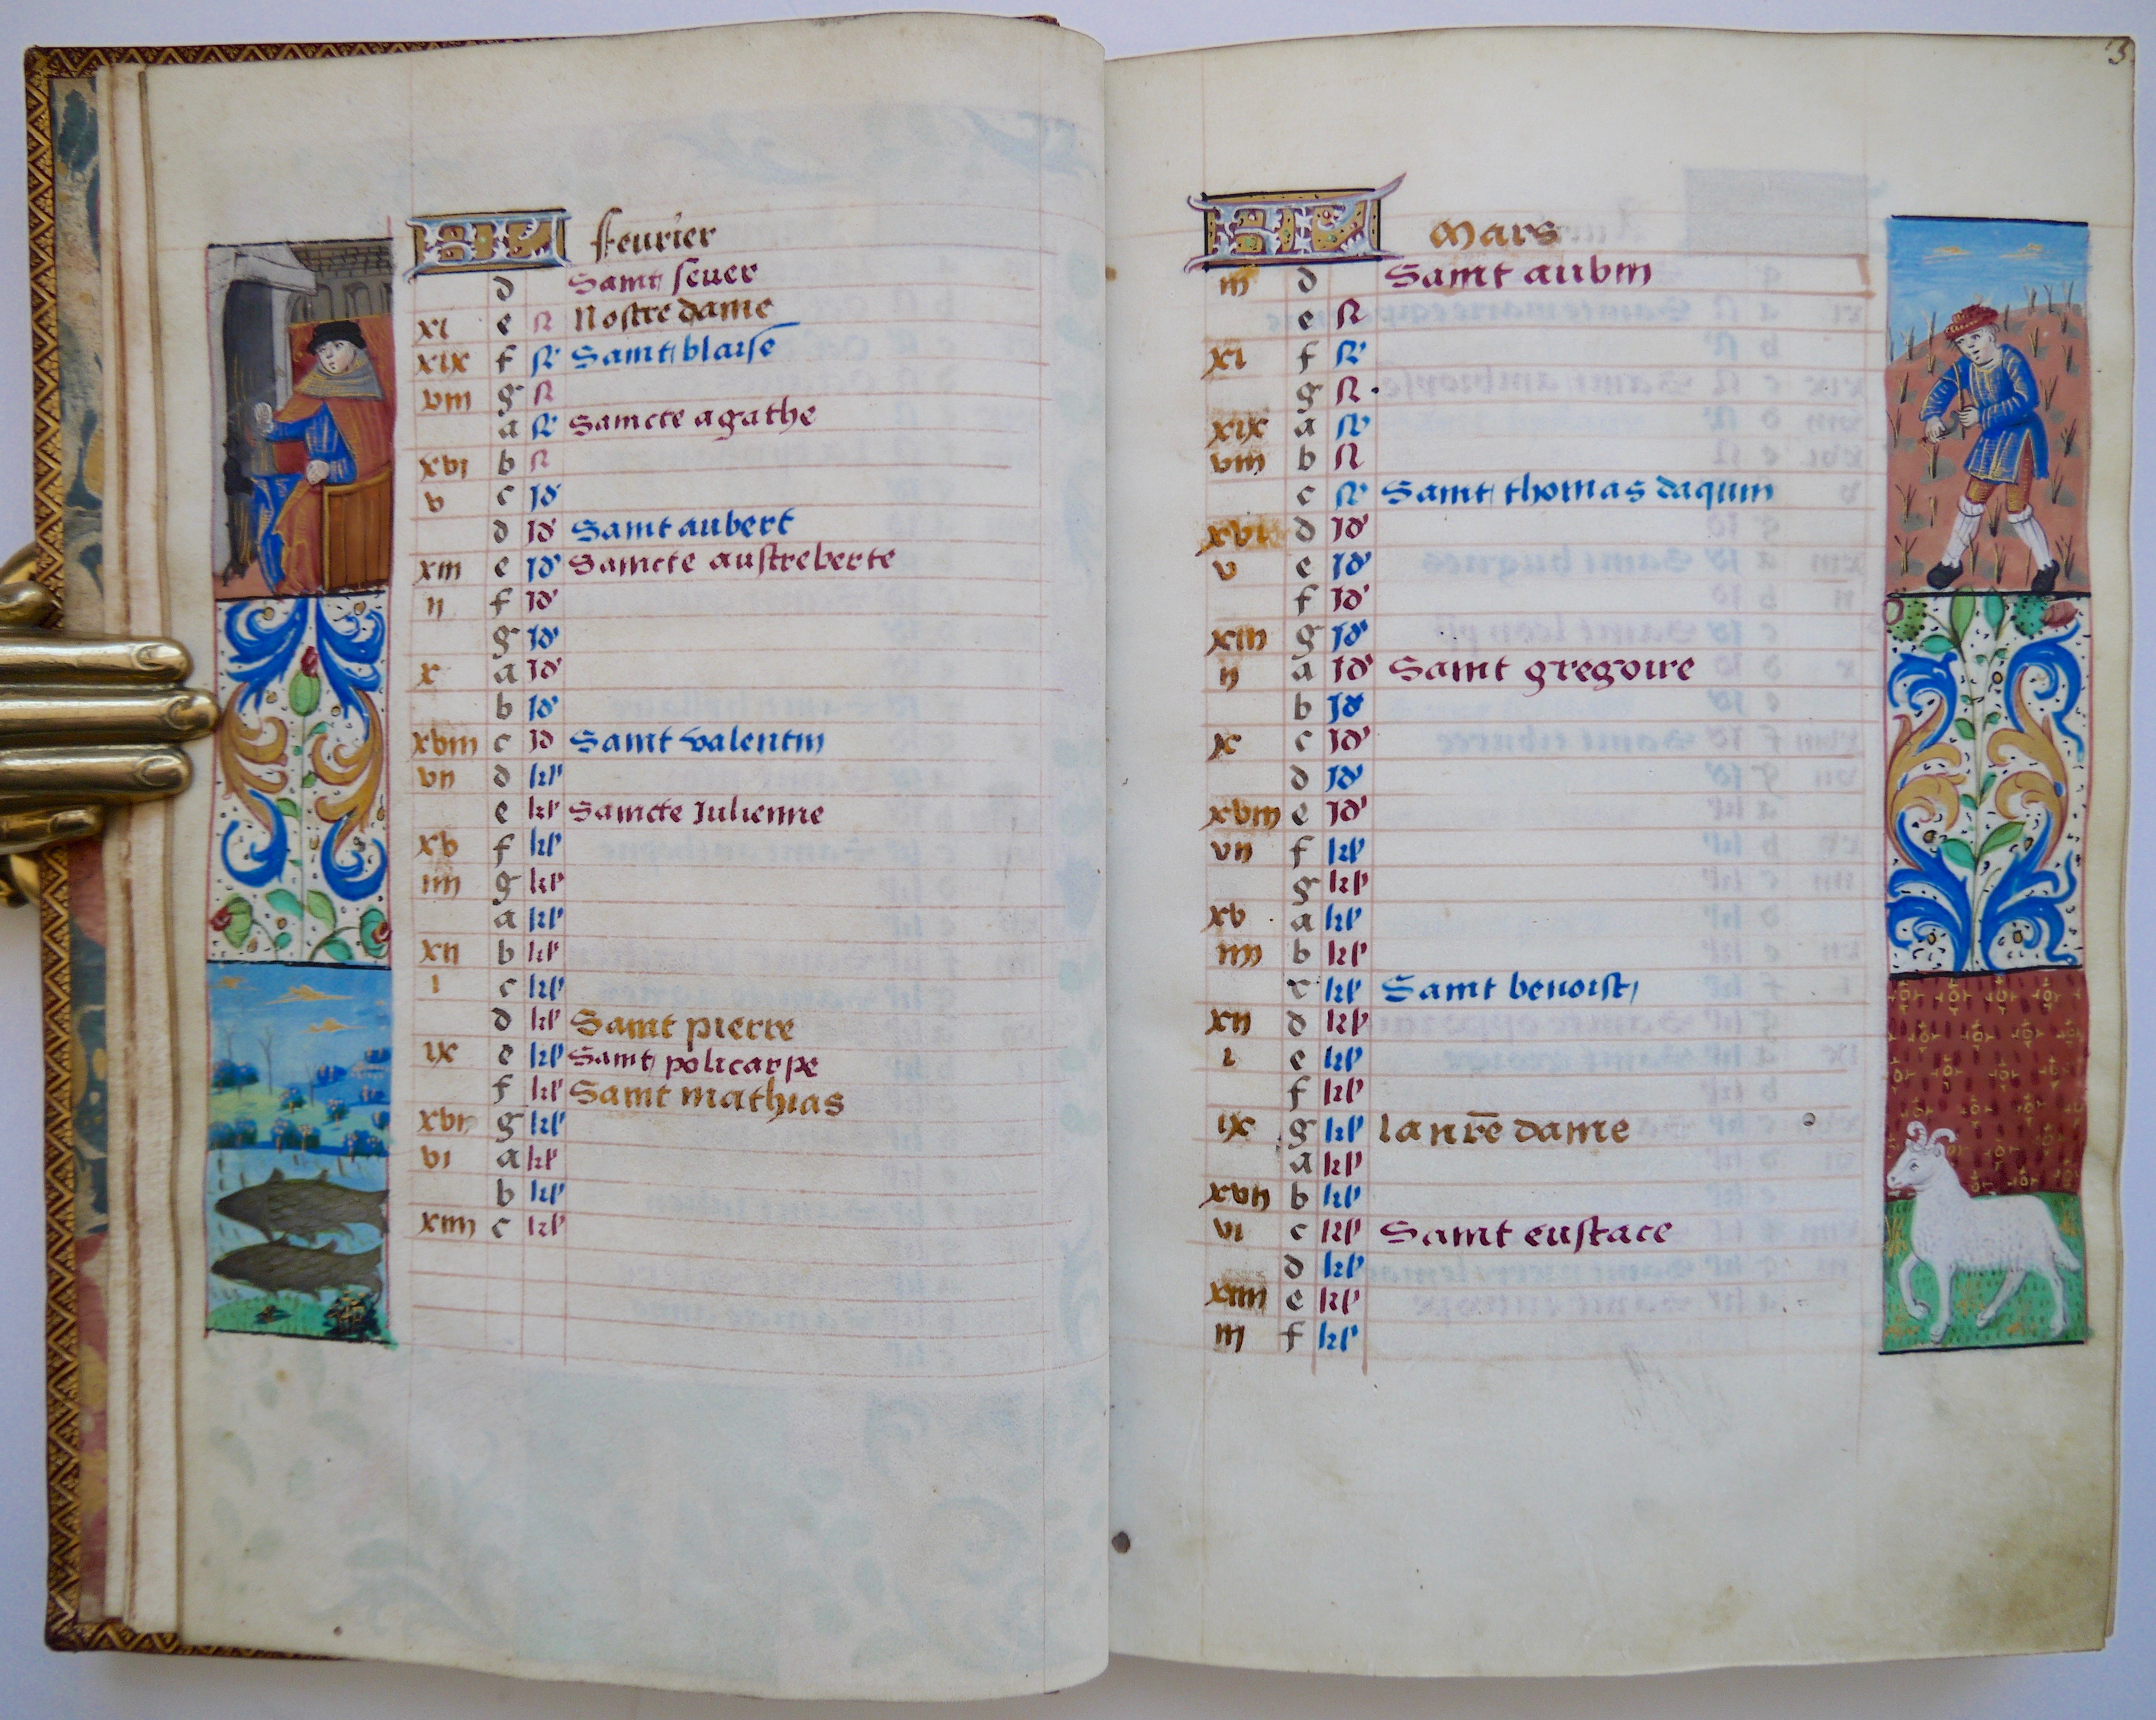 KL feurier
d Saint seuer
xi e N Nostre dame
xix f N Saint blaise
viii g N
a N Saincte agathe
xvi b N
v c Id
d Id Saint aubert
xiii e Id Saincte austreberte
ii f Id
g Id
x a Id
b Id
xviii c Id Saint valentin
vii d kl
e kl Saincte Iulienne
xv f kl
iiii g kl
a kl
xii b kl
i c kl
d kl Saint pierre
ix e kl Saint policarpe
f kl Saint mathias
xvii g kl
vi a kl
b kl
xiiii c kl
3
KL Mars
iii d Saint aubin
e N
xi f N
g N
xix a N
viii b N
c N Saint thomas daquin
xvi d Id
v e Id
f Id
xiii g Id
ii a Id Saint gregoire
b Id
x c Id
d Id
xviii e Id
vii f kl
g kl
xv a kl
iiii b kl
c kl Saint benoist
xii d kl
i e kl
f kl
ix g kl la nr̃e dame
a kl
xvii b kl
vi c kl Saint eustace
d kl
xiiii e kl
iii f kl